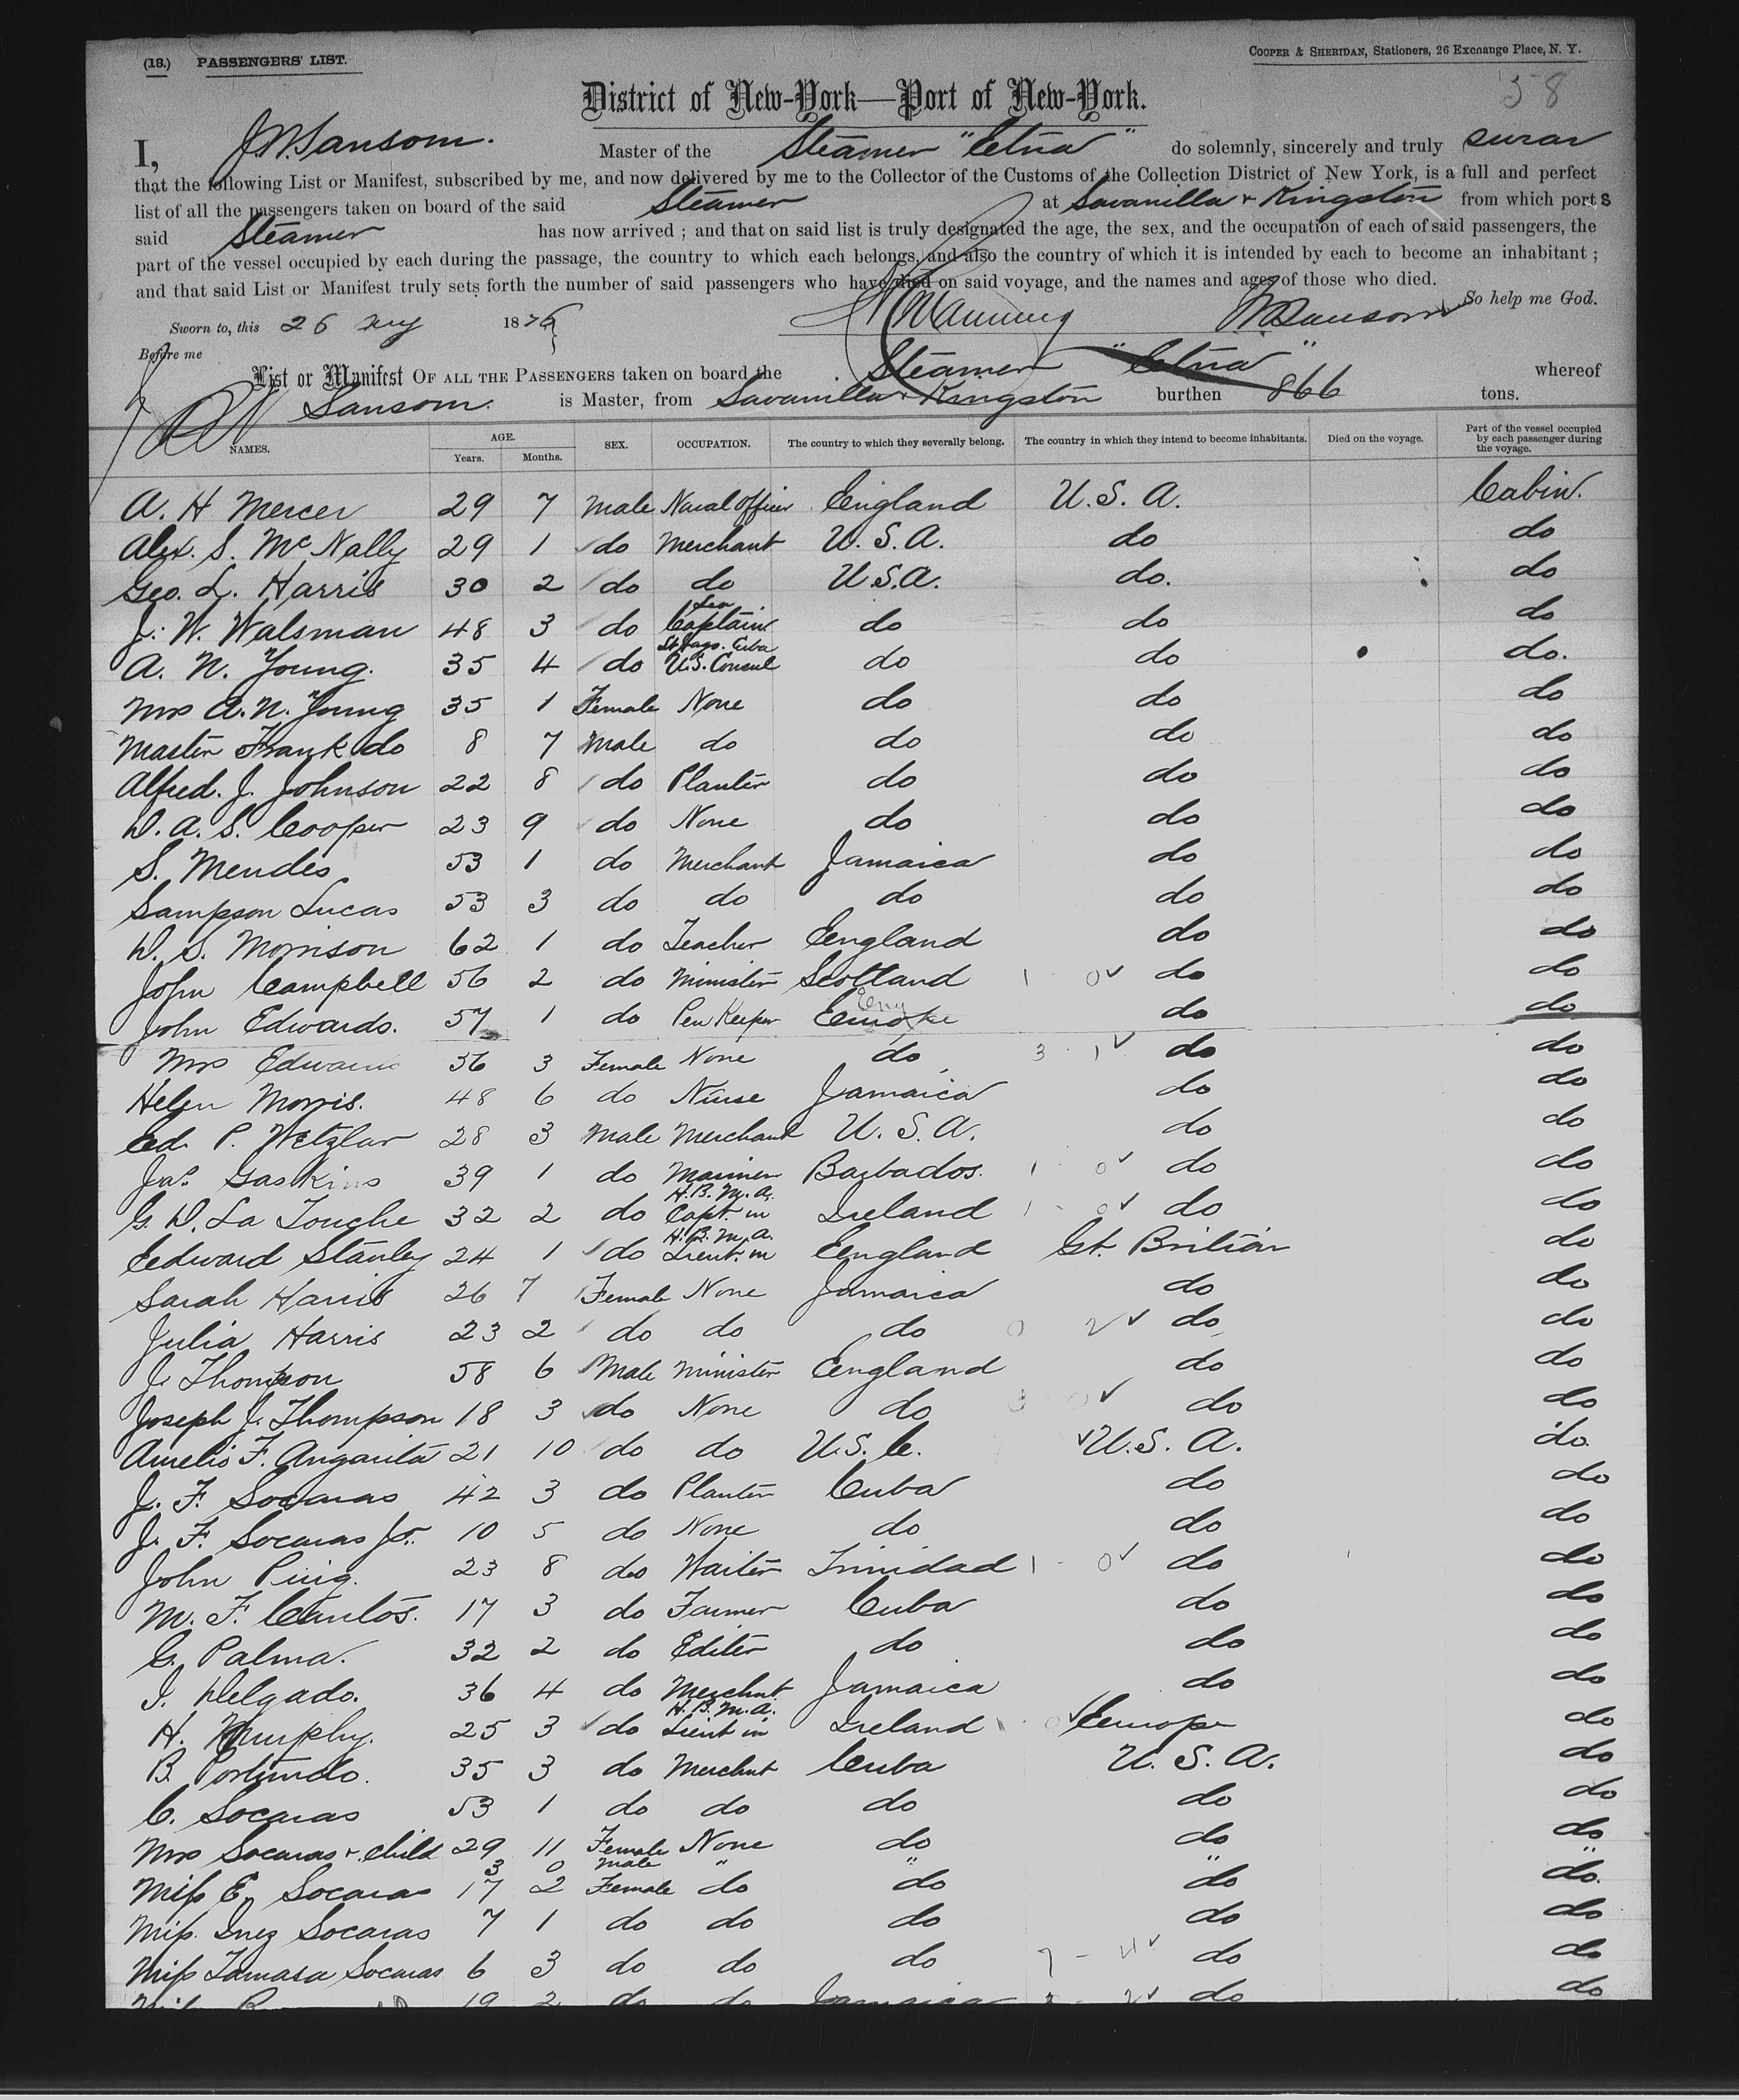 (18.) PASSENGERS' LIST. COOPER & SHERIDAN, Stationers, 26 Exchange Place, N. Y.
58
District of New-York—Port of New-York.
I, J.W. Sansom. Master of the Steamer "Etna" do solemnly, sincerely and truly swear
that the following List or Manifest, subscribed by me, and now delivered by me to the Collector of the Customs of the Collection District of New York, is a full and perfect
list of all the passengers taken on board of the said Steamer at Savanilla & Kingston from which ports
said Steamer has now arrived ; and that on said list is truly designated the age, the sex, and the occupation of each of said passengers, the
part of the vessel occupied by each during the passage, the country to which each belongs, and also the country of which it is intended by each to become an inhabitant ;
and that said List or Manifest truly sets forth the number of said passengers who have died on said voyage, and the names and ages of those who died.
So help me God.
Sworn to, this 26 1876 Sansom
Before me
List or Manifest OF ALL THE PASSENGERS taken on board the Steamer "Etna" whereof
Sansom. is Master, from Savanilla & Kingston burthen 866 tons.
NAMES. AGE. Years. Months. SEX. OCCUPATION. The country to which they severally belong. The country in which they intend to become inhabitants. Died on the voyage. Part of the vessel occupied by each passenger during the voyage.
A. H Mercer 29 7 Male Naval Officer England U. S. A. Cabin.
Alex. S. McNally 29 1 do Merchant U. S. A. do do
Geo. L. Harris 30 2 do do U.S.A. do. do
J. W. Walsman 48 3 do Sea Captain do do do
A. N. Young. 35 4 do St Jago. Cuba U.S. Consul do do do.
Mrs A. N. Young 35 1 Female None do do do
Master Frank do 8 7 Male do do do do
Alfred. J. Johnson 22 8 do Planter do do do
D. A. S. Cooper 23 9 do None do do do
S. Mendes 53 1 do Merchant Jamaica do do
Sampson Lucas 53 3 do do do do do
D. S. Morrison 62 1 do Teacher England do do
John Campbell 56 2 do Minister Scotland 1 - 0 do do
John Edwards. 57 1 do Pen Keeper Eng do do
Mrs Edwards 36 3 Female None do 3 - 1 do do
Helen Morris. 48 6 do Nurse Jamaica do do
Ed. P. Wetzlar 28 3 Male Merchant U. S. A. do do
Jas. Gaskins 39 1 do Mariner Barbados. 1 - 0 do do
G. D. La Touche 32 2 do H. B. M. A. Capt. in Ireland 1 - 0 do do
Edward Stanley 24 1 do H. B. M. A. Lieut. in England Gt. Britian do
Sarah Harris 26 7 Female None Jamaica do do
Julia Harris 23 2 do do do 0 2 do do
J. Thompson 58 6 Male Minister England do do
Joseph J. Thompson 18 3 do None do 3 0 do do
Aurelio F. Angarita 21 10 do do U. S. C. U. S. A. do.
J. F. Socaras 42 3 do Planter Cuba do do
J. F. Socaras Jr. 10 5 do None do do do
John Puig. 23 8 do Waiter Trinidad 1 - 0 do do
M. F. Cantos. 17 3 do Farmer Cuba do do
G. Palma. 32 2 do Editer do do do
I. Delgado. 36 4 do Merchnt. Jamaica do do
H. Murphy. 25 3 do H. B. M. A. Lieut in Ireland Europe do
B. Portundo. 35 3 do Merchnt Cuba U. S. A. do
C. Socaras 53 1 do do do do do
Mrs Socaras & Child 29 11 Female None do do do
3 0 Male " " " "
Miss E. Socaras 17 2 Female do do do do.
Miss. Inez Socaras 7 1 do do do do do
Miss Tamasa Socaras 6 3 do do do 7 - 4 do do
19 2 do do Jamaica 2 do do